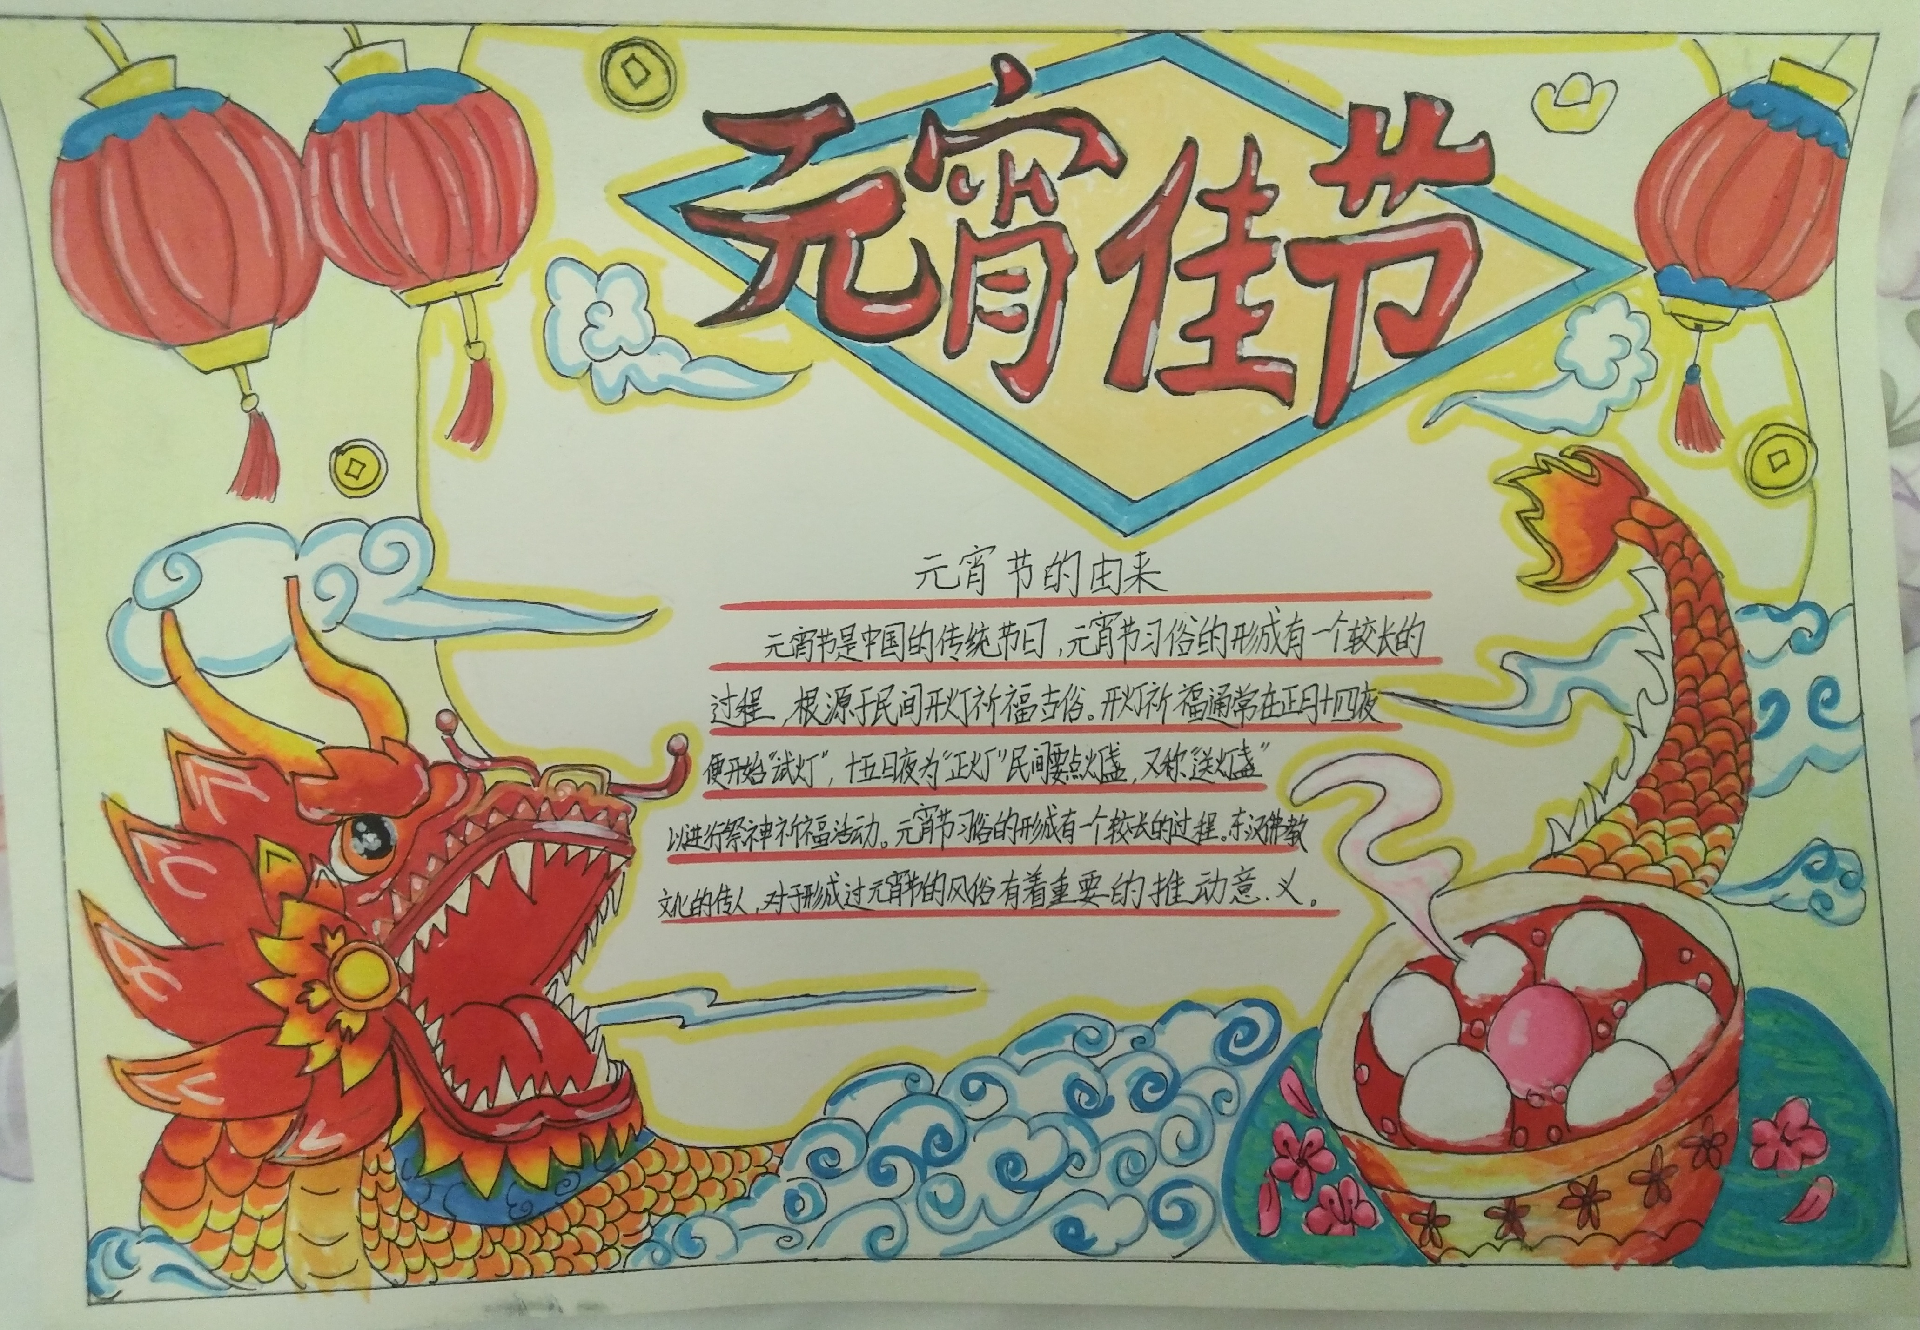 元宵佳节
元宵节的由来
元宵节是中国的传统节日,元宵节习俗的形成有一个较长的
过程,根源于民间开灯祈福古俗。开灯祈福通常在正月十四夜
便开始"试灯",十五日夜为"正灯"民间要点灯盏,又称"送灯盏"
以进行祭神祈福活动。元宵节习俗的形成有一个较长的过程。东汉佛教
文化的传人,对于形成过元宵节的风俗有着重要的推动意义。